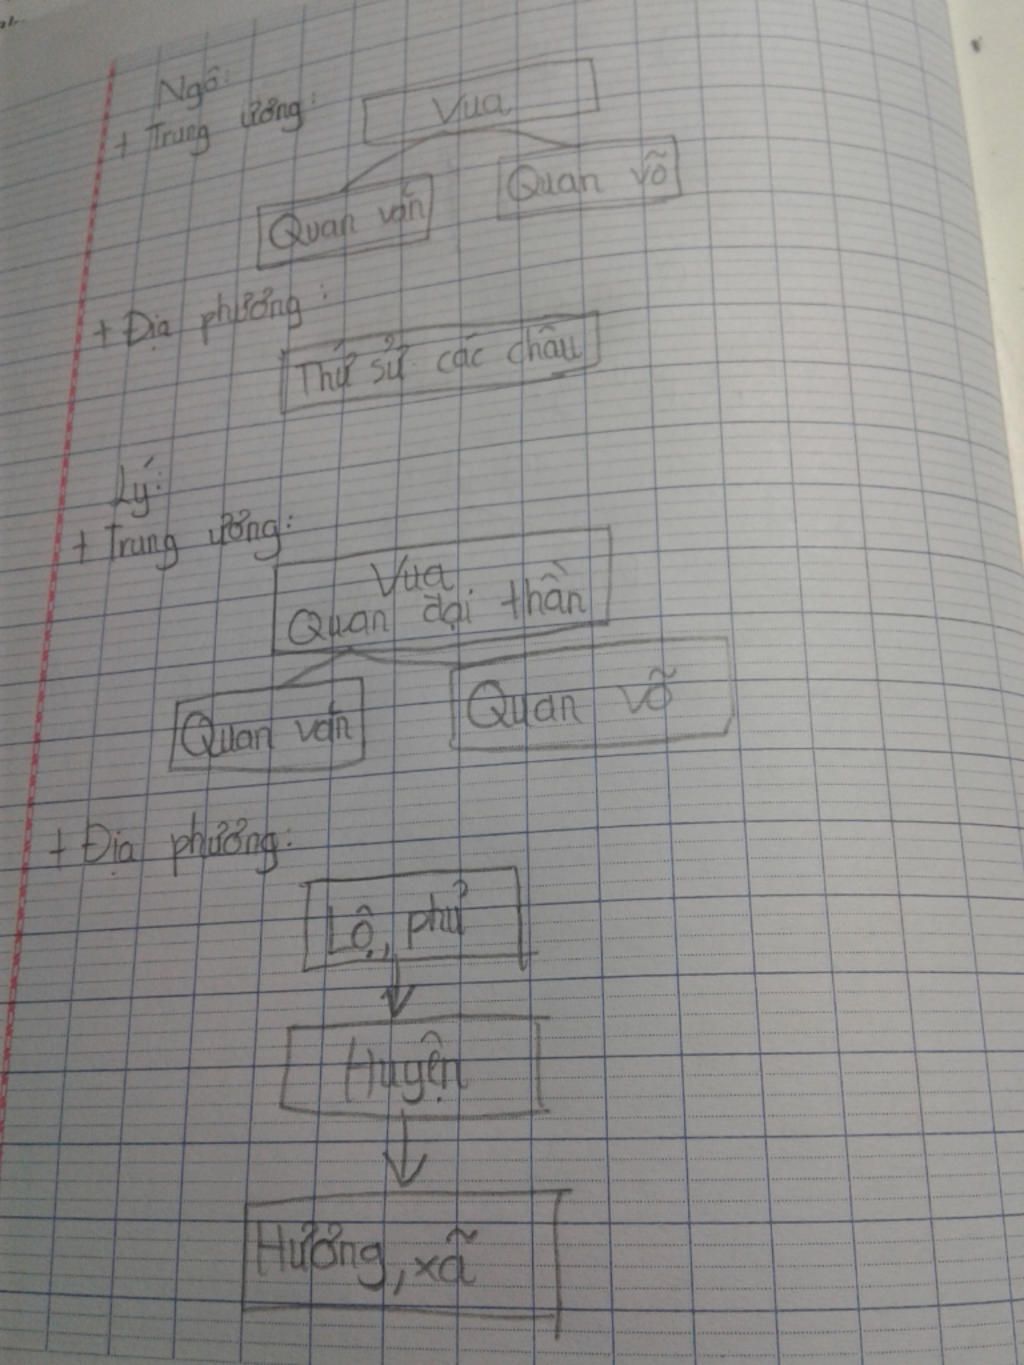 Ngô:
+ Trung ương:
Vua
Quan văn
Quan võ
+ Địa phương:
Thứ sử các châu
Lý:
+ Trung ương:
Vua
Quan đại thần
Quan văn
Quan võ
+ Địa phương:
Lộ, phủ
Huyện
Hương, xã